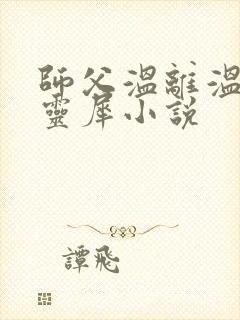 師父溫離溫
靈犀小說
譚飛